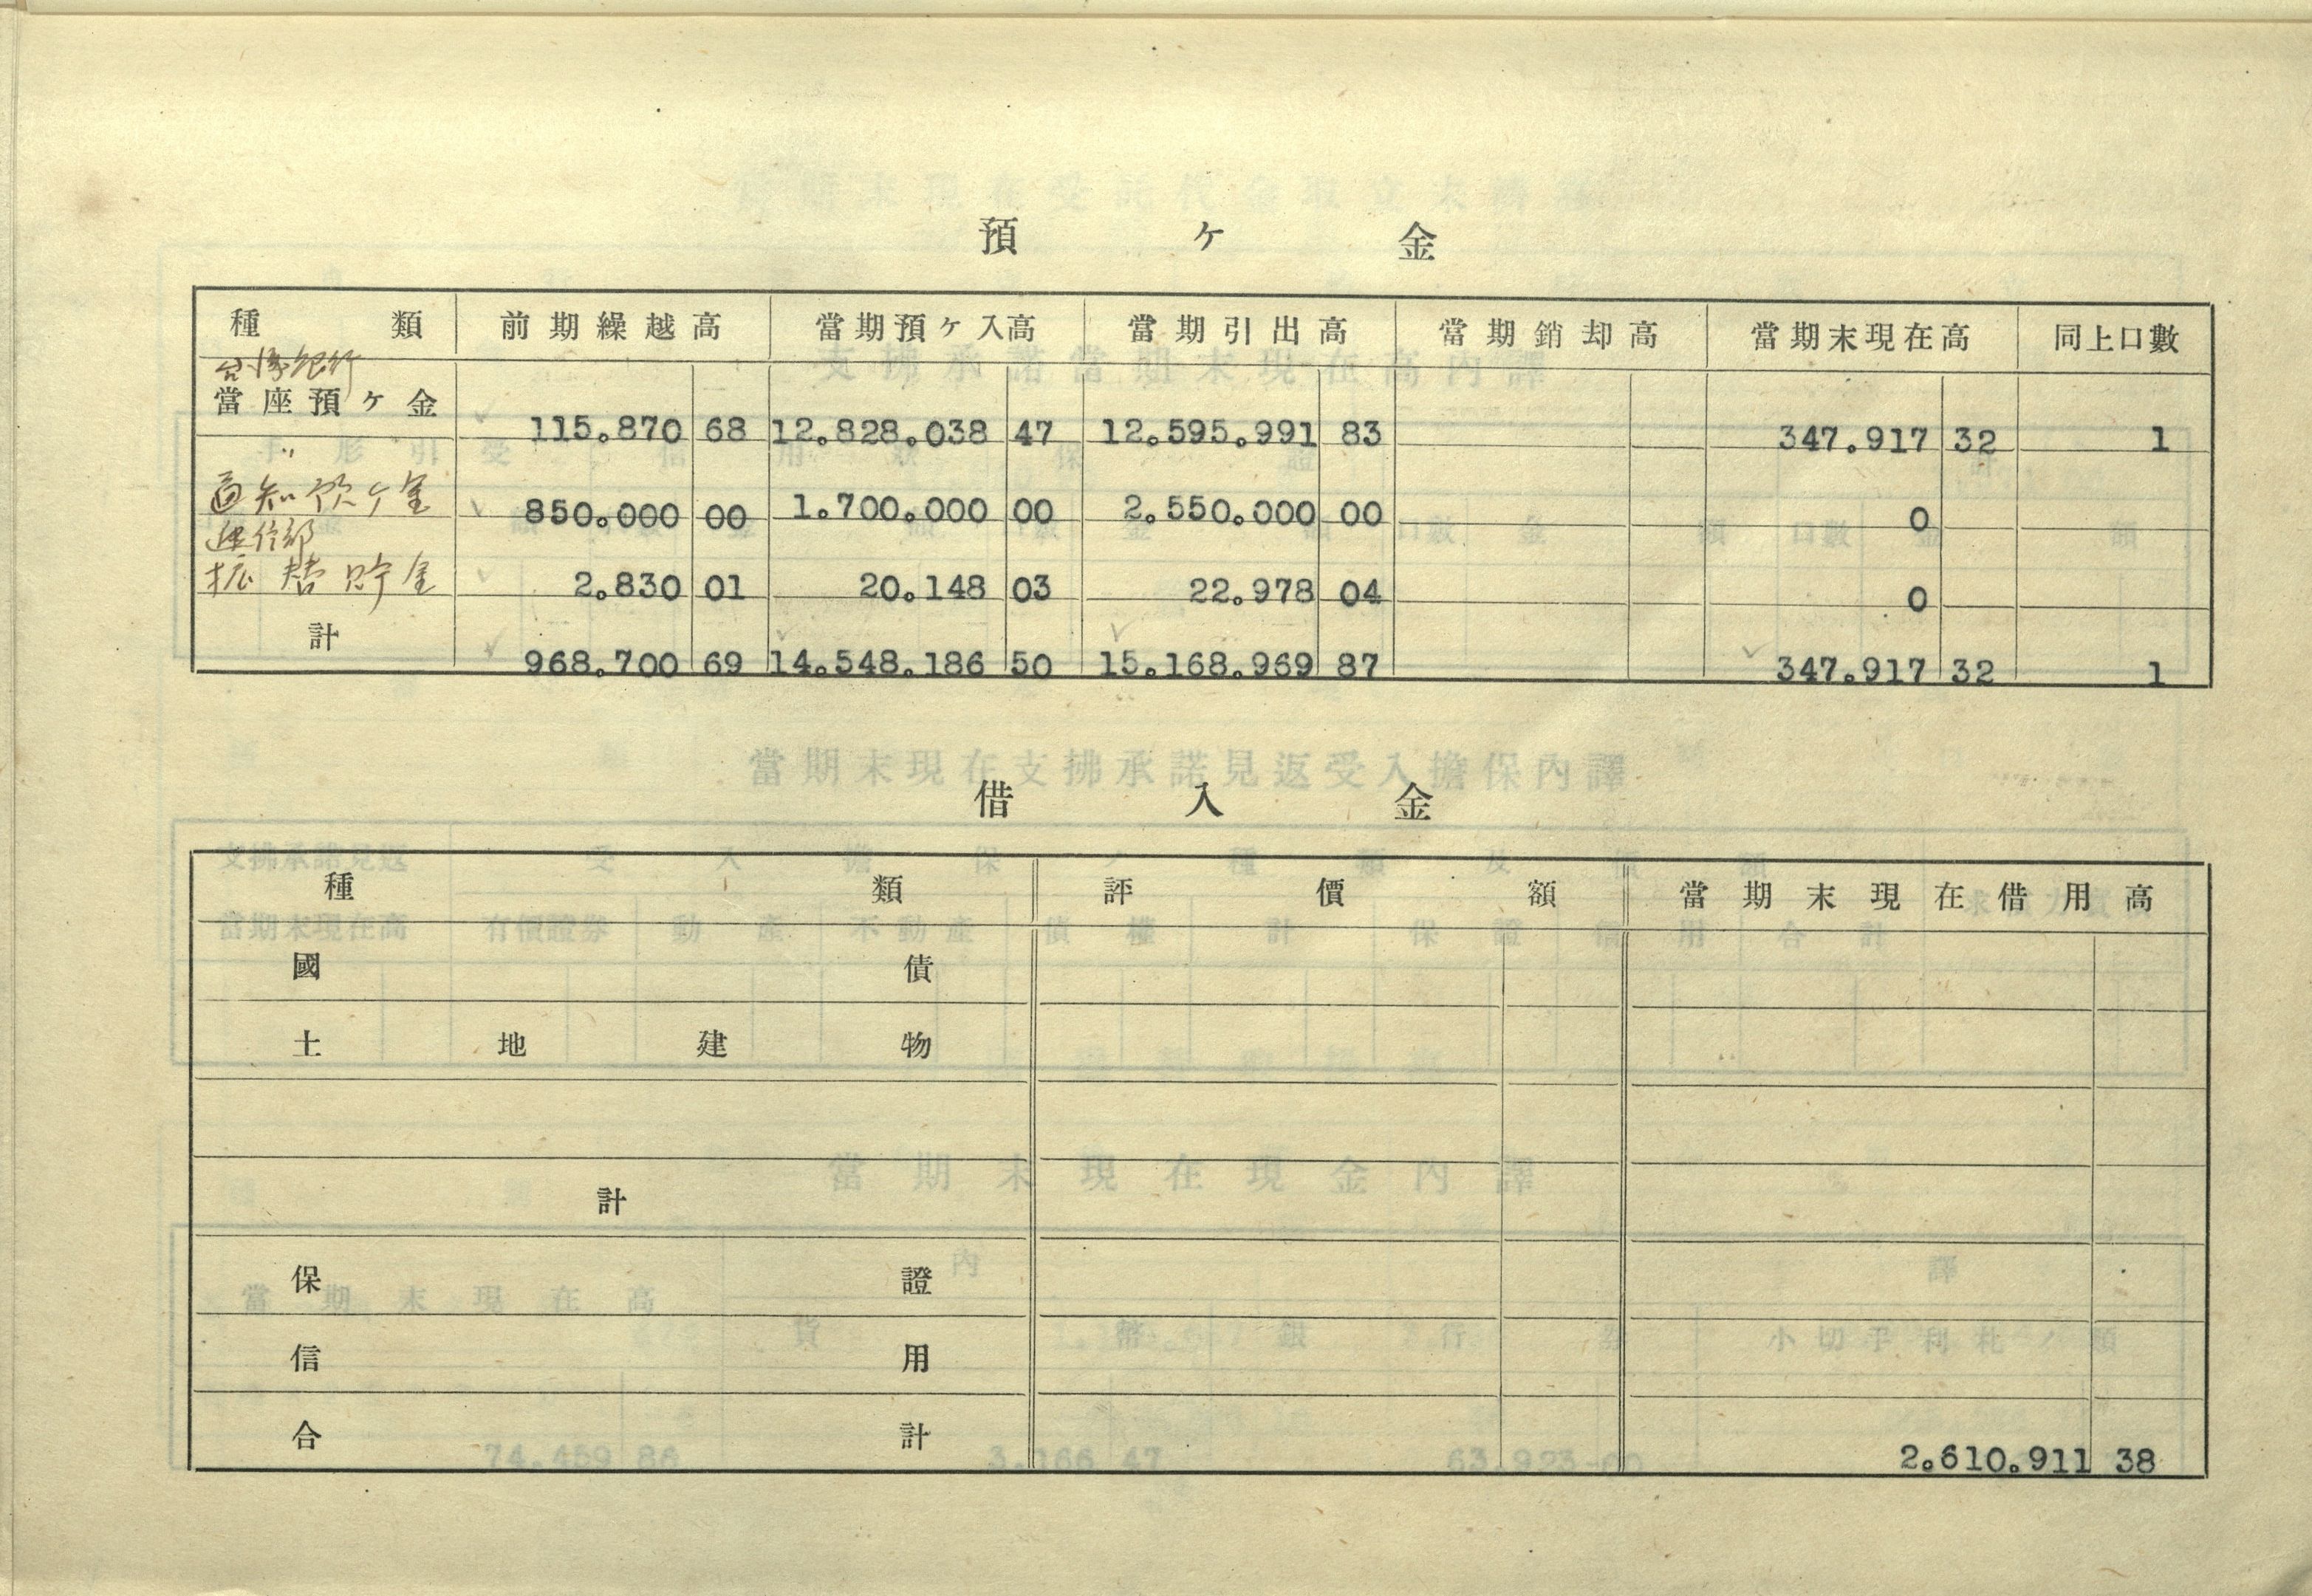 預ケ金
種類 前期繰越高 當期預ケ入高 當期引出高 當期銷却高 當期末現在高 同上口數
台湾銀行
當座預ケ金 115.870 68 12.828.038 47 12.595.991 83 347.917 32 1
〃
通知預ケ金 850.000 00 1.700.000 00 2.550.000 00 0
逓信部
振替貯金 2.830 01 20.148 03 22.978 04 0
計 968.700 69 14.548.186 50 15.168.969 87 347.917 32 1
借入金
種類 評價額 當期末現在借用高
國債
土地建物
計
保證
信用
合計 2.610.911 38